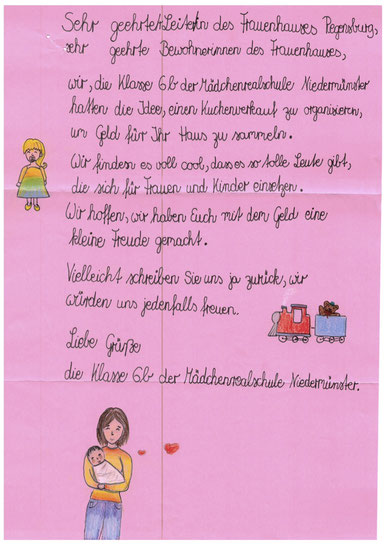 Sehr geehrte Leiterin des Frauenhauses Regensburg,
sehr geehrte Bewohnerinnen des Frauenhauses,
wir, die Klasse 6b der Mädchenrealschule Niedermünster
hatten die Idee, einen Kuchenverkauf zu organisieren,
um Geld für Ihr Haus zu sammeln.
Wir finden es voll cool, dass es so tolle Leute gibt,
die sich für Frauen und Kinder einsetzen.
Wir hoffen, wir haben Euch mit dem Geld eine
kleine Freude gemacht.
Vielleicht schreiben Sie uns ja zurück, wir
würden uns jedenfalls freuen.
Liebe Grüße
die Klasse 6b der Mädchenrealschule Niedermünster.